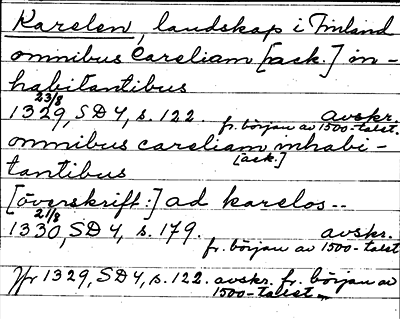 Karelen, landskap i Finland
omnibus Careliam [ack.] in-
habitantibus
23/8
1329, SD4, s. 122. avskr.
fr. början av 1500-talet.
omnibus careliam inhabi-
[ack.]
tantibus
[överskrift:] ad karelos --
21/8
1330, SD4, s. 179. avskr.
fr. början av 1500-talet
Jfr 1329, SD4, s. 122. avskr. fr. början av
1500-talet